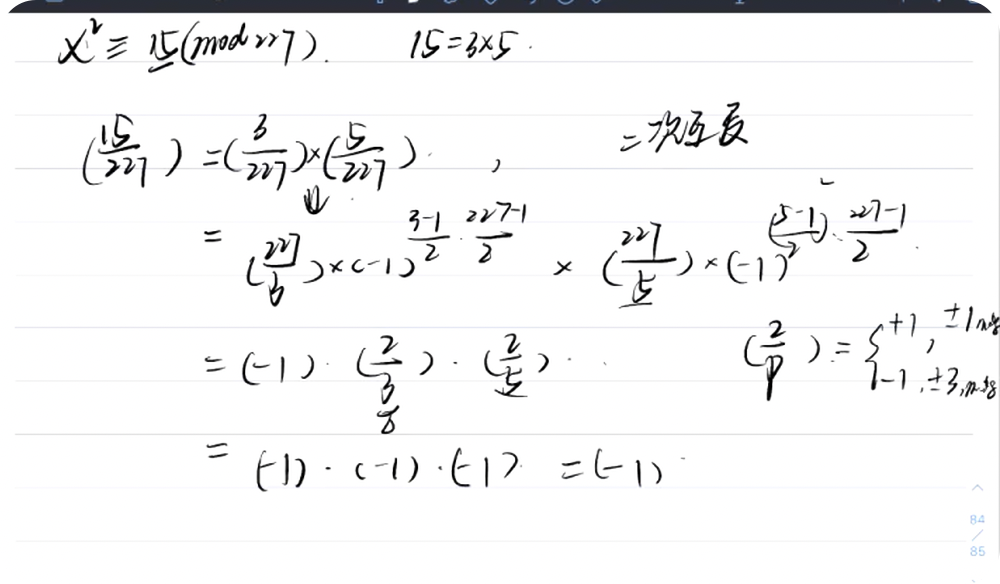 x² ≡ 15 (mod 227). 15 = 3×5.
(15/227) = (3/227) × (5/227). , 二次互反
= (227/3) × (-1)^(3-1)/2 · (227-1)/2 × (227/5) × (-1)^(5-1)/2 · (227-1)/2
= (-1) · (2/3) · (2/5) . (2/p) = { +1, ±1 mod 8
-1, ±3, mod 8
= (-1) · (-1) · (-1) = (-1)
84
/
85